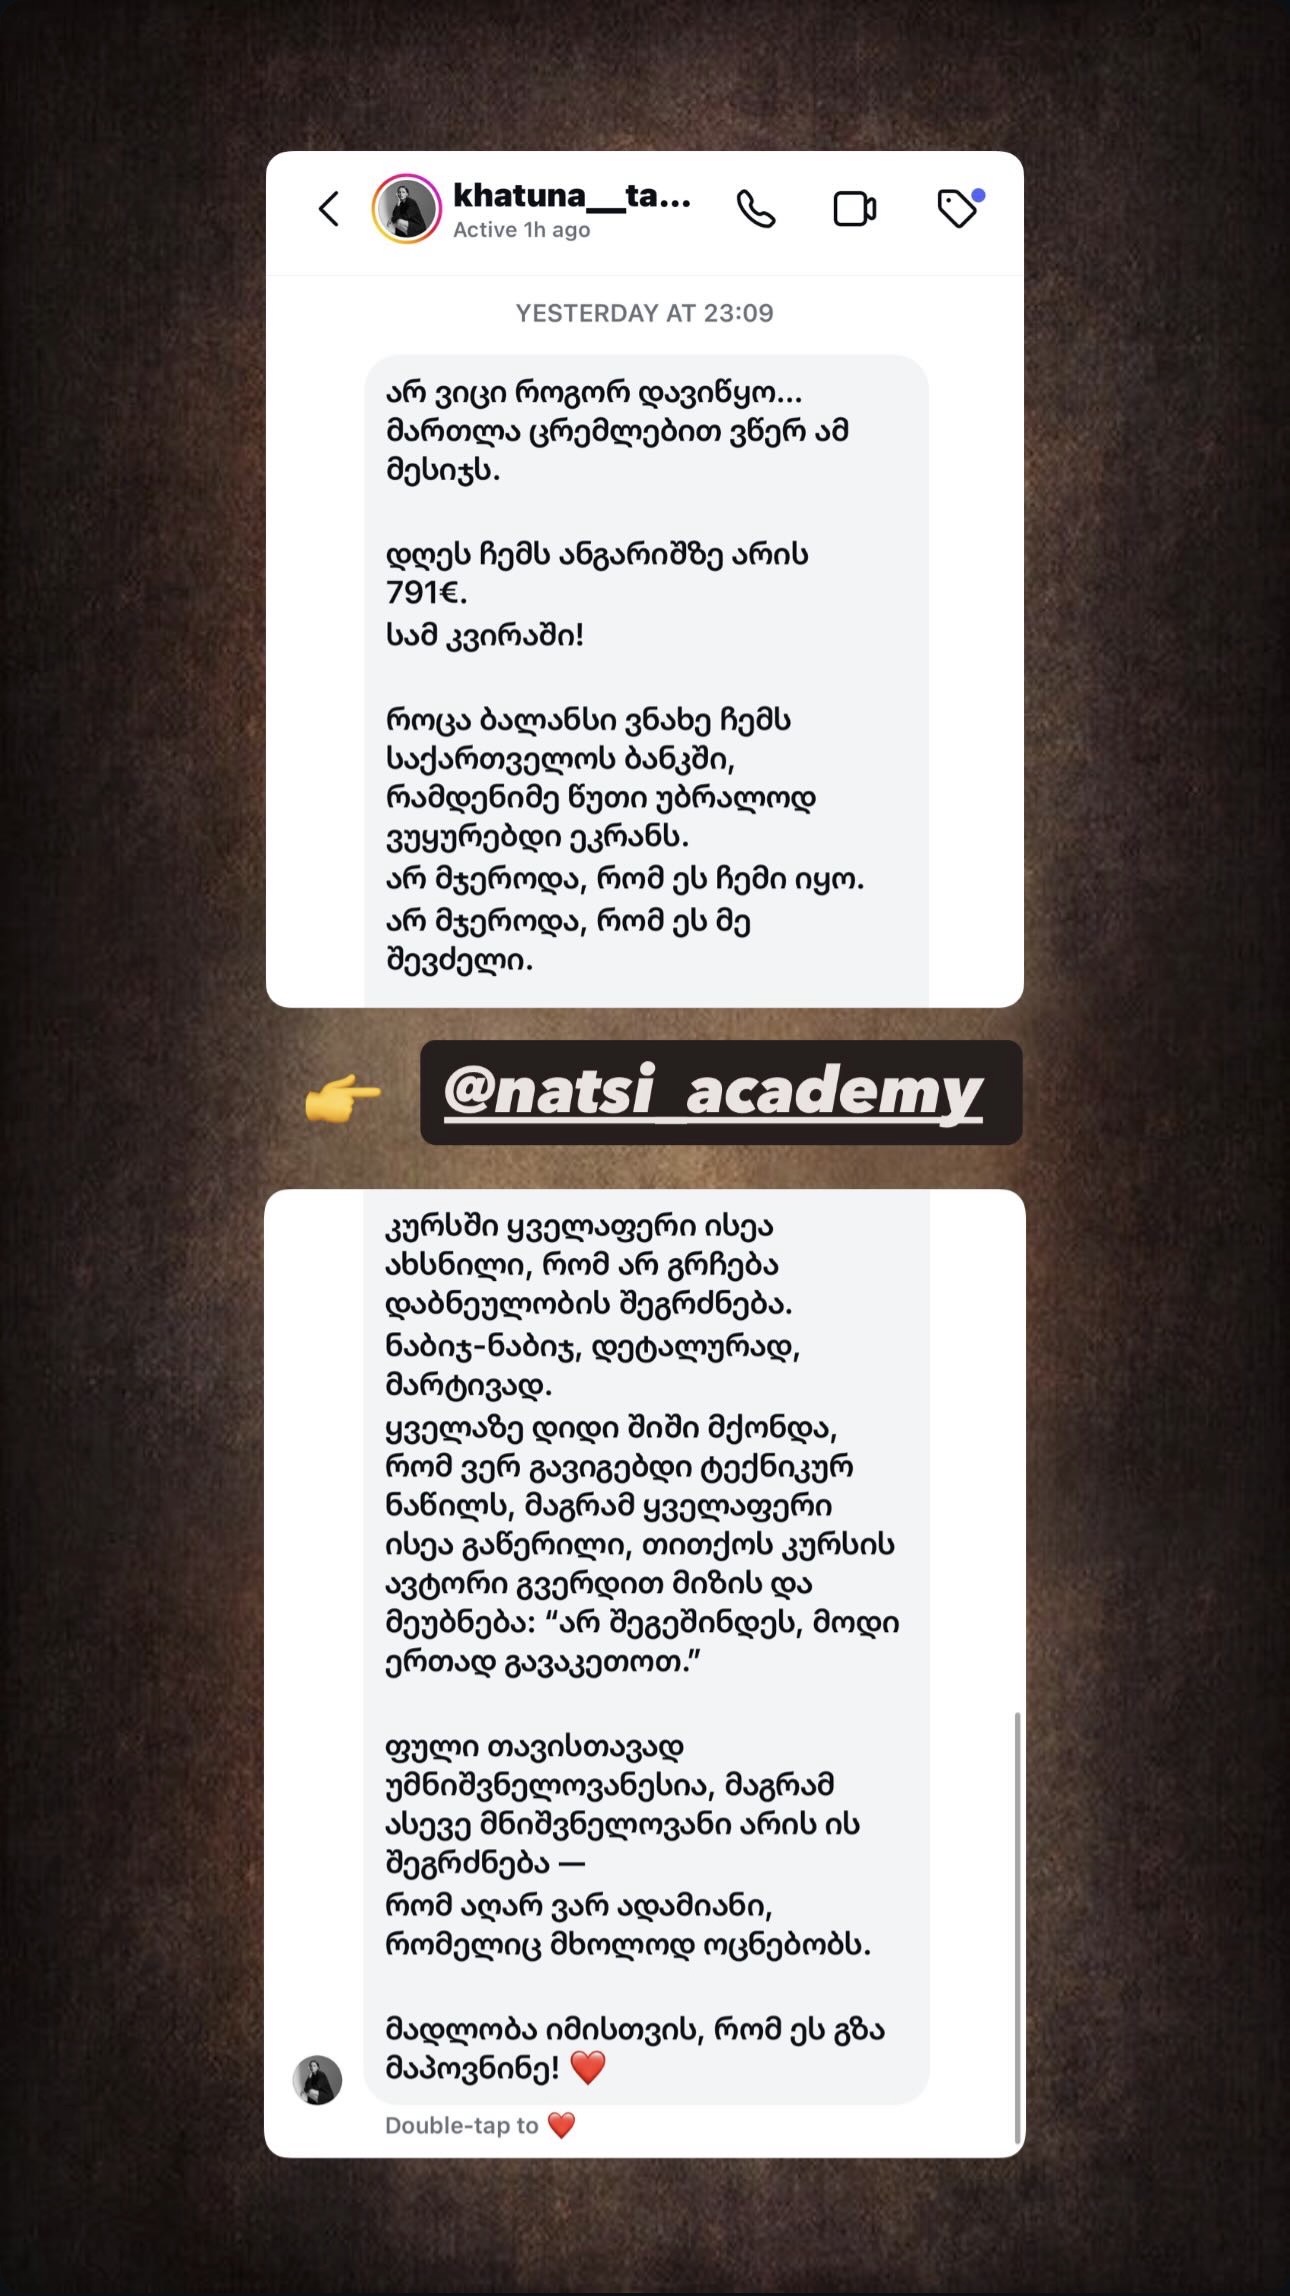 khatuna__ta...
Active 1h ago
YESTERDAY AT 23:09
არ ვიცი როგორ დავიწყო...
მართლა ცრემლებით ვწერ ამ
მესიჯს.
დღეს ჩემს ანგარიშზე არის
791€.
სამ კვირაში!
როცა ბალანსი ვნახე ჩემს
საქართველოს ბანკში,
რამდენიმე წუთი უბრალოდ
ვუყურებდი ეკრანს.
არ მჯეროდა, რომ ეს ჩემი იყო.
არ მჯეროდა, რომ ეს მე
შევძელი.
👉 @natsi_academy
კურსში ყველაფერი ისეა
ახსნილი, რომ არ გრჩება
დაბნეულობის შეგრძნება.
ნაბიჯ-ნაბიჯ, დეტალურად,
მარტივად.
ყველაზე დიდი შიში მქონდა,
რომ ვერ გავიგებდი ტექნიკურ
ნაწილს, მაგრამ ყველაფერი
ისეა გაწერილი, თითქოს კურსის
ავტორი გვერდით მიზის და
მეუბნება: “არ შეგეშინდეს, მოდი
ერთად გავაკეთოთ.”
ფული თავისთავად
უმნიშვნელოვანესია, მაგრამ
ასევე მნიშვნელოვანი არის ის
შეგრძნება —
რომ აღარ ვარ ადამიანი,
რომელიც მხოლოდ ოცნებობს.
მადლობა იმისთვის, რომ ეს გზა
მაპოვნინე! ❤️
Double-tap to ❤️